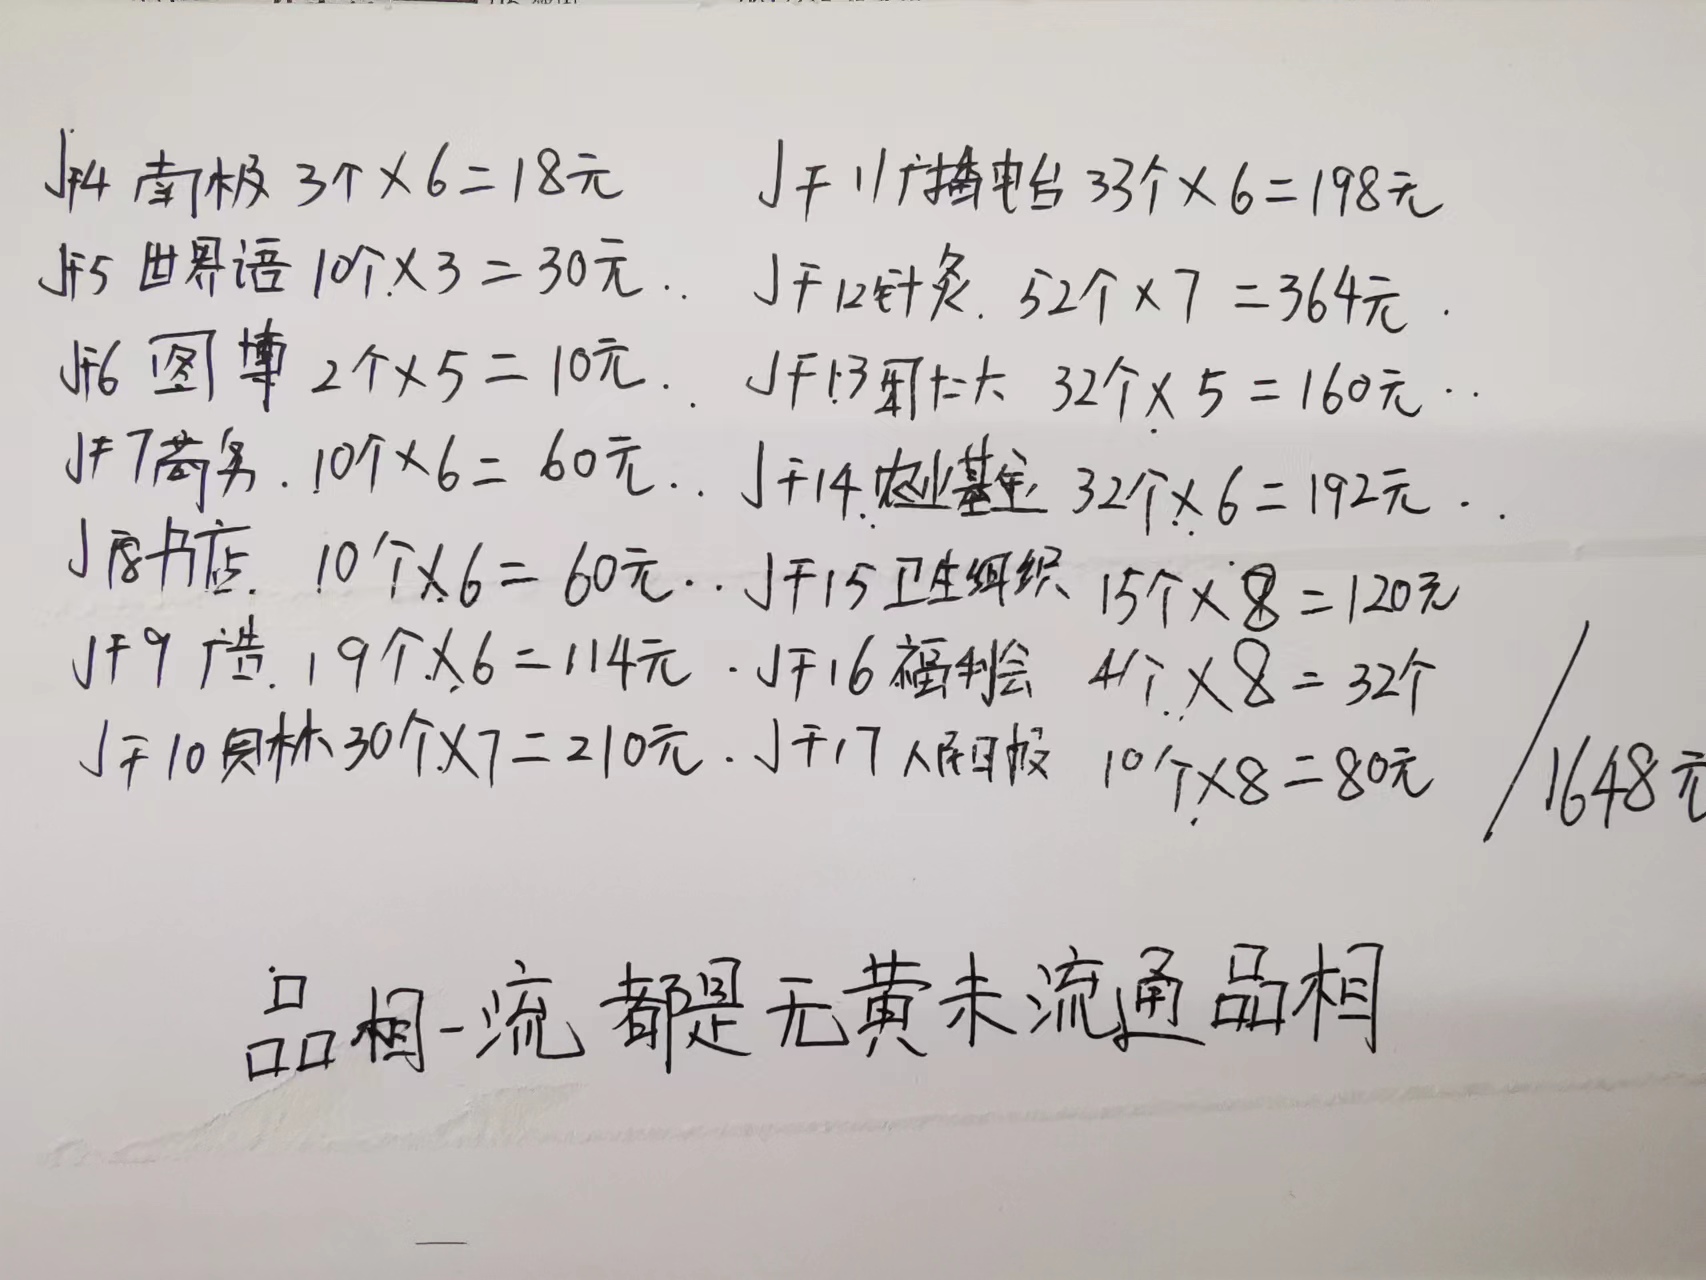 JF4 南极 3个×6=18元
JF5 世界语 10个×3=30元..
JF6 图博 2个×5=10元..
JF7商务.10个×6=60元..
JF8书店. 10个×6=60元..
JF9广告.19个×6=114元.
JF10贝林30个×7=210元.
JF11广播电台33个×6=198元
JF12针灸.52个×7=364元.
JF13 32个×5=160元..
JF14.农业基金 32个×6=192元..
JF15卫生组织 15个×8=120元
JF16福利会 4个×8=32个
JF17人民日报 10个×8=80元
/1648元
品相一流 都是无黄未流通品相